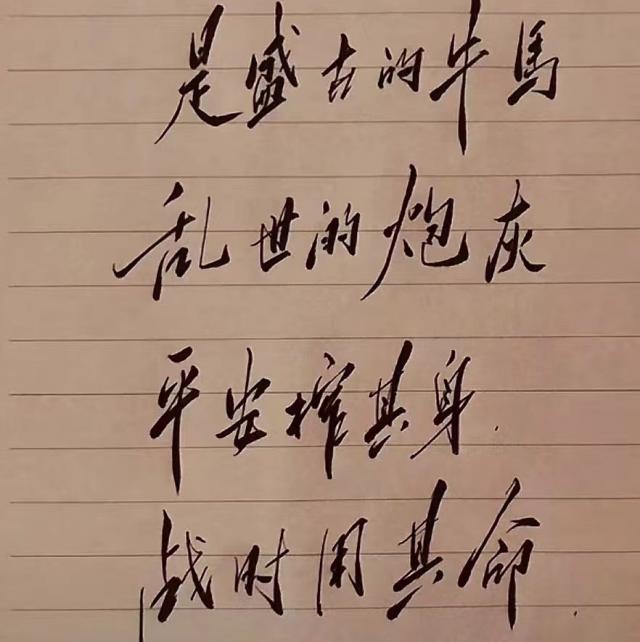 是盛古的牛馬
乱世的炮灰
平安榨其身.
战时用其命.